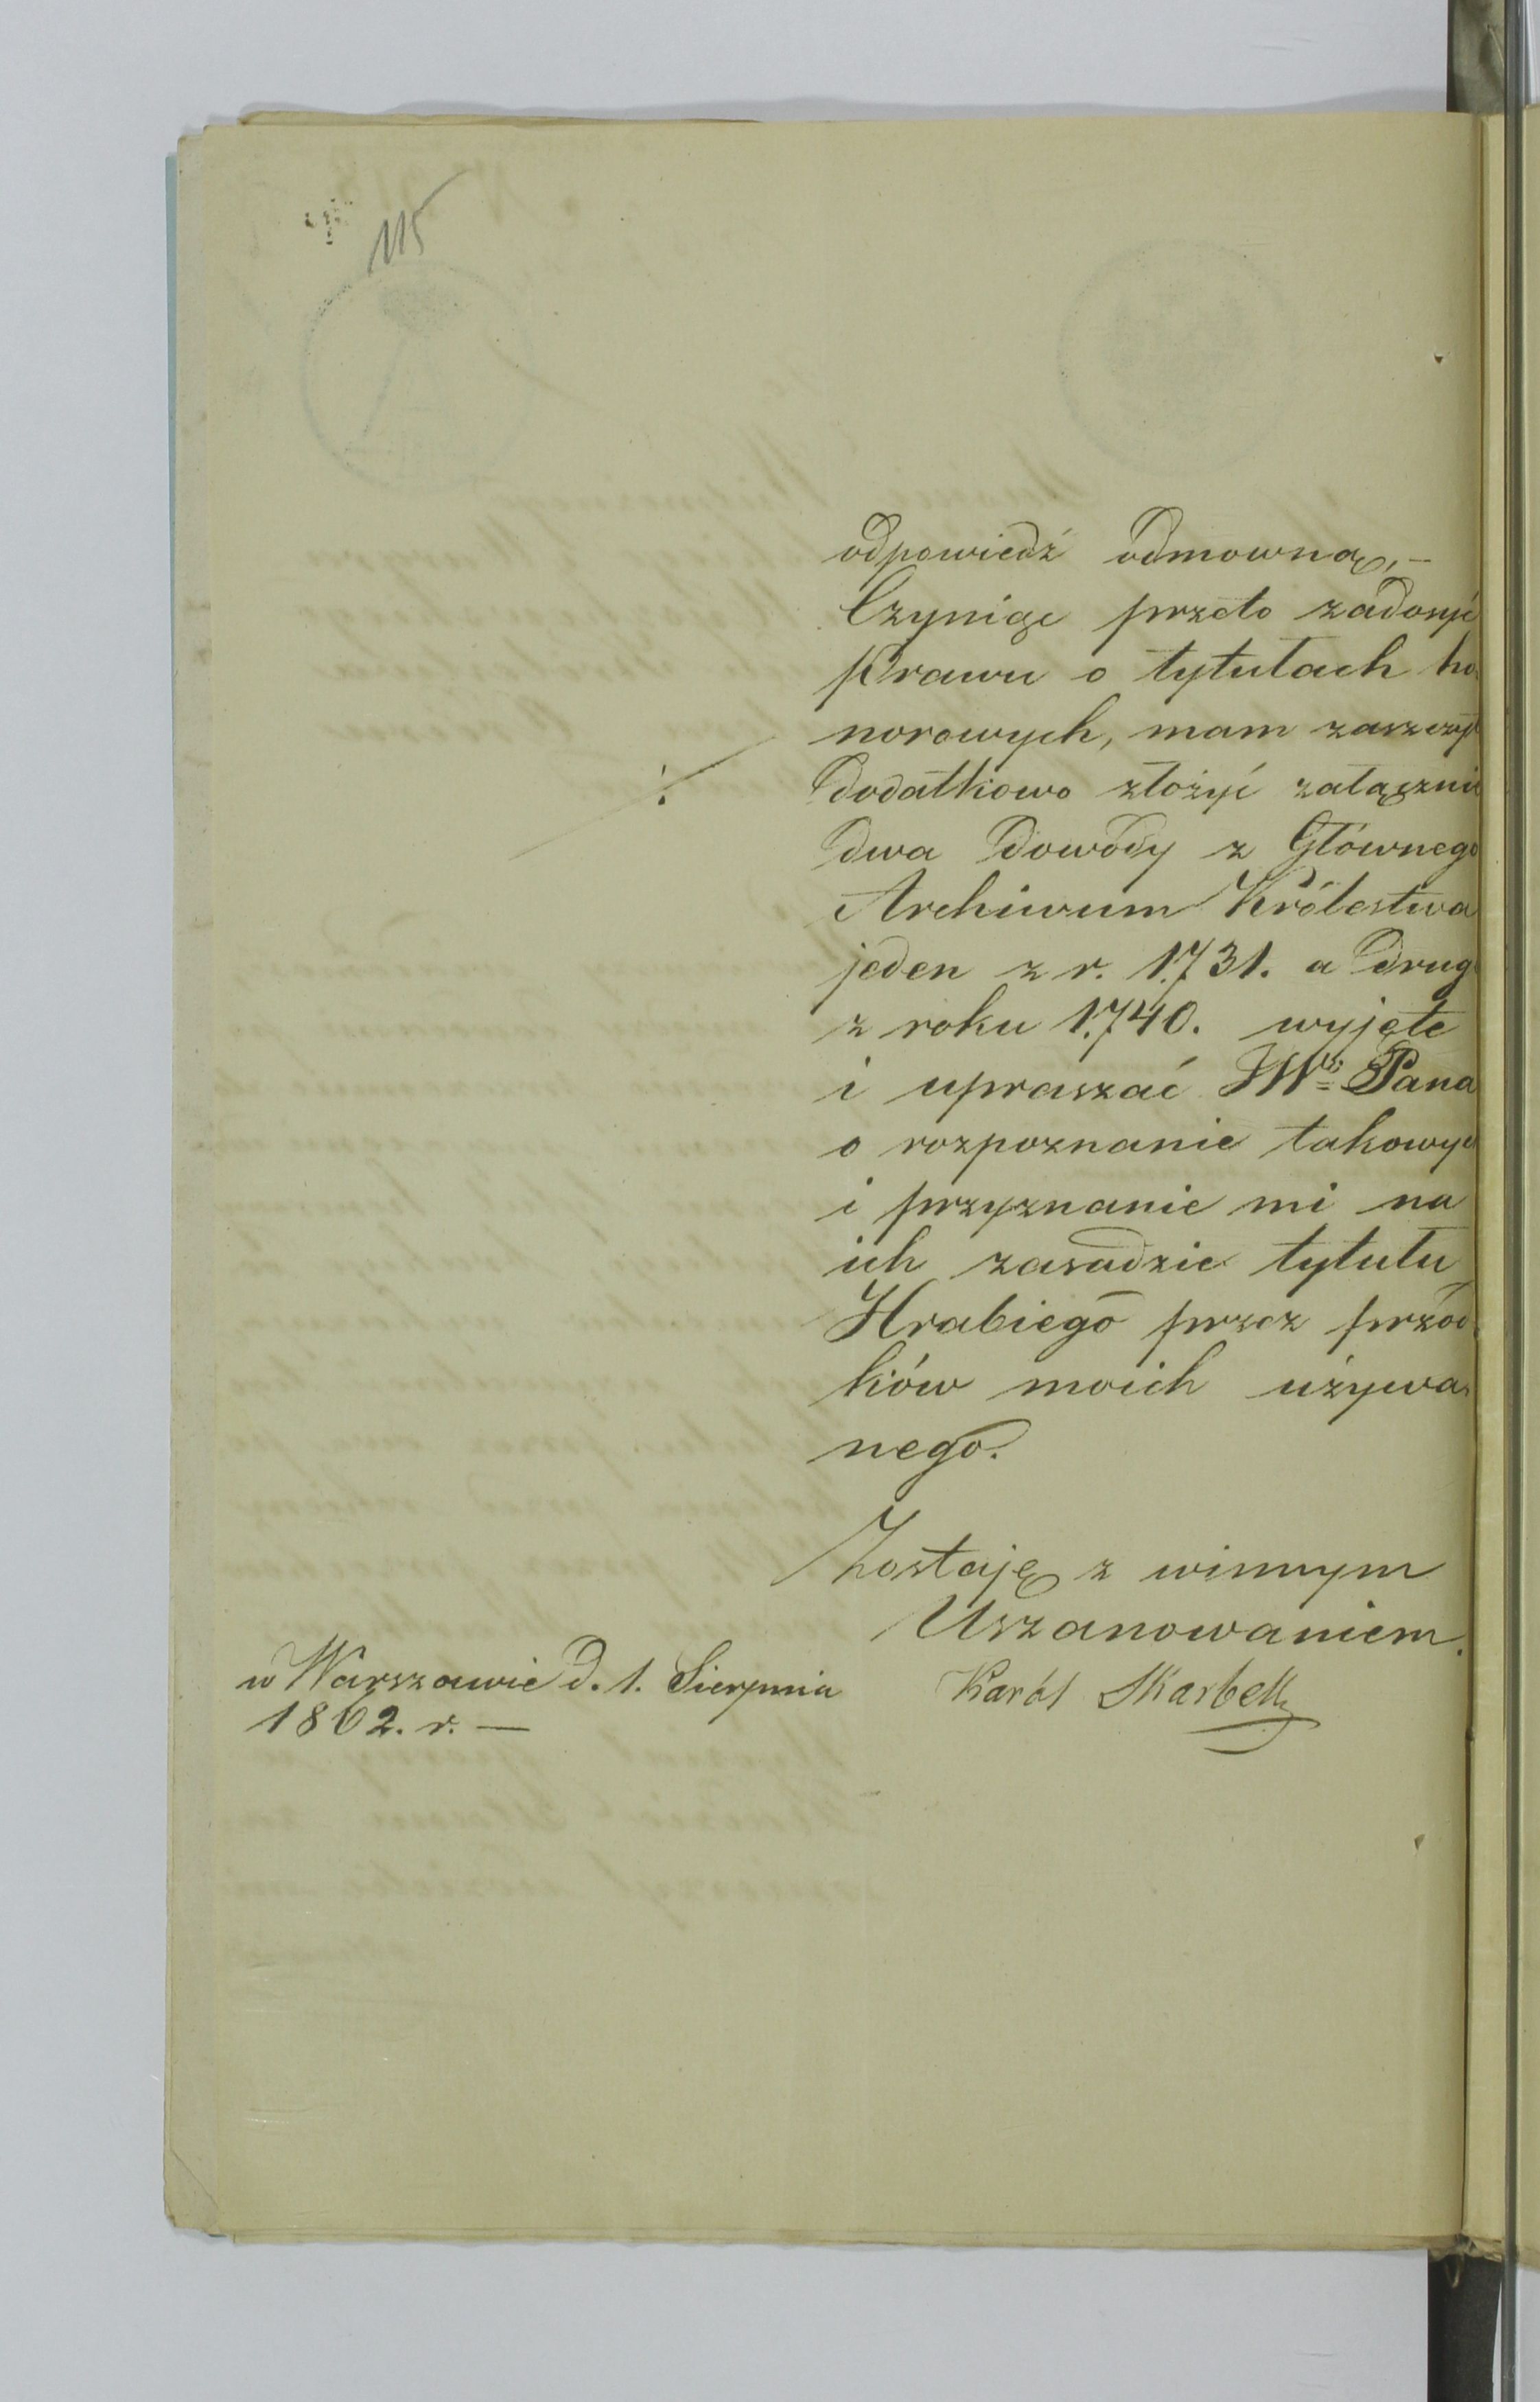 115
odpowiedź odmowną, –
Czyniąc przeto zadosyć
Prawu o tytułach ho
norowych, mam zaszczyt
dodatkowo złożyć załączni
dwa dowody z Głównego
Archiwum Królestwa
jeden z r. 1731. a drug
z roku 1740. wyjęte
i upraszać JWo Pana
o rozpoznanie takowyc
i przyznanie mi na
ich zasadzie tytułu
Hrabiego przez przod
ków moich używa
nego.
Zostaję z winnym
Uszanowaniem.
w Warszawie d. 1. Sierpnia
1862. r. —
Karól Skarbek